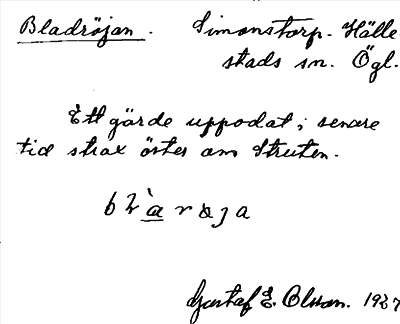 Bladröjan. Simonstorp. Hälle
stads sn. Ögl.
Ett gärde uppodat i senare
tid strax öster om Struten.
Gustaf E. Olsson. 1927